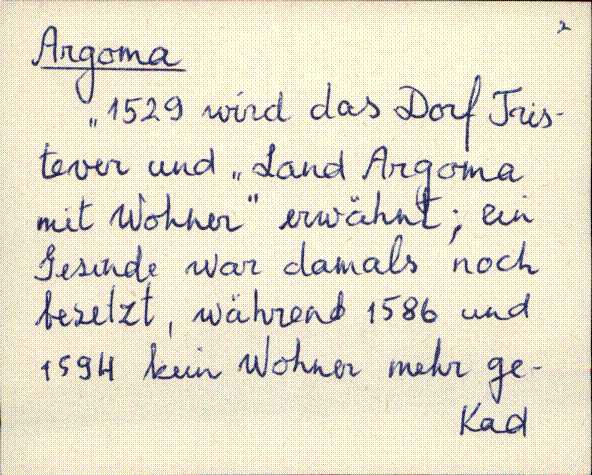 2
Argoma
„1529 wird das Dorf Tris-
tever und „Land Argoma
mit Wohner" erwähnt; ein
Gesinde war damals noch
besetzt, während 1586 und
1594 kein Wohner mehr ge-
Kad